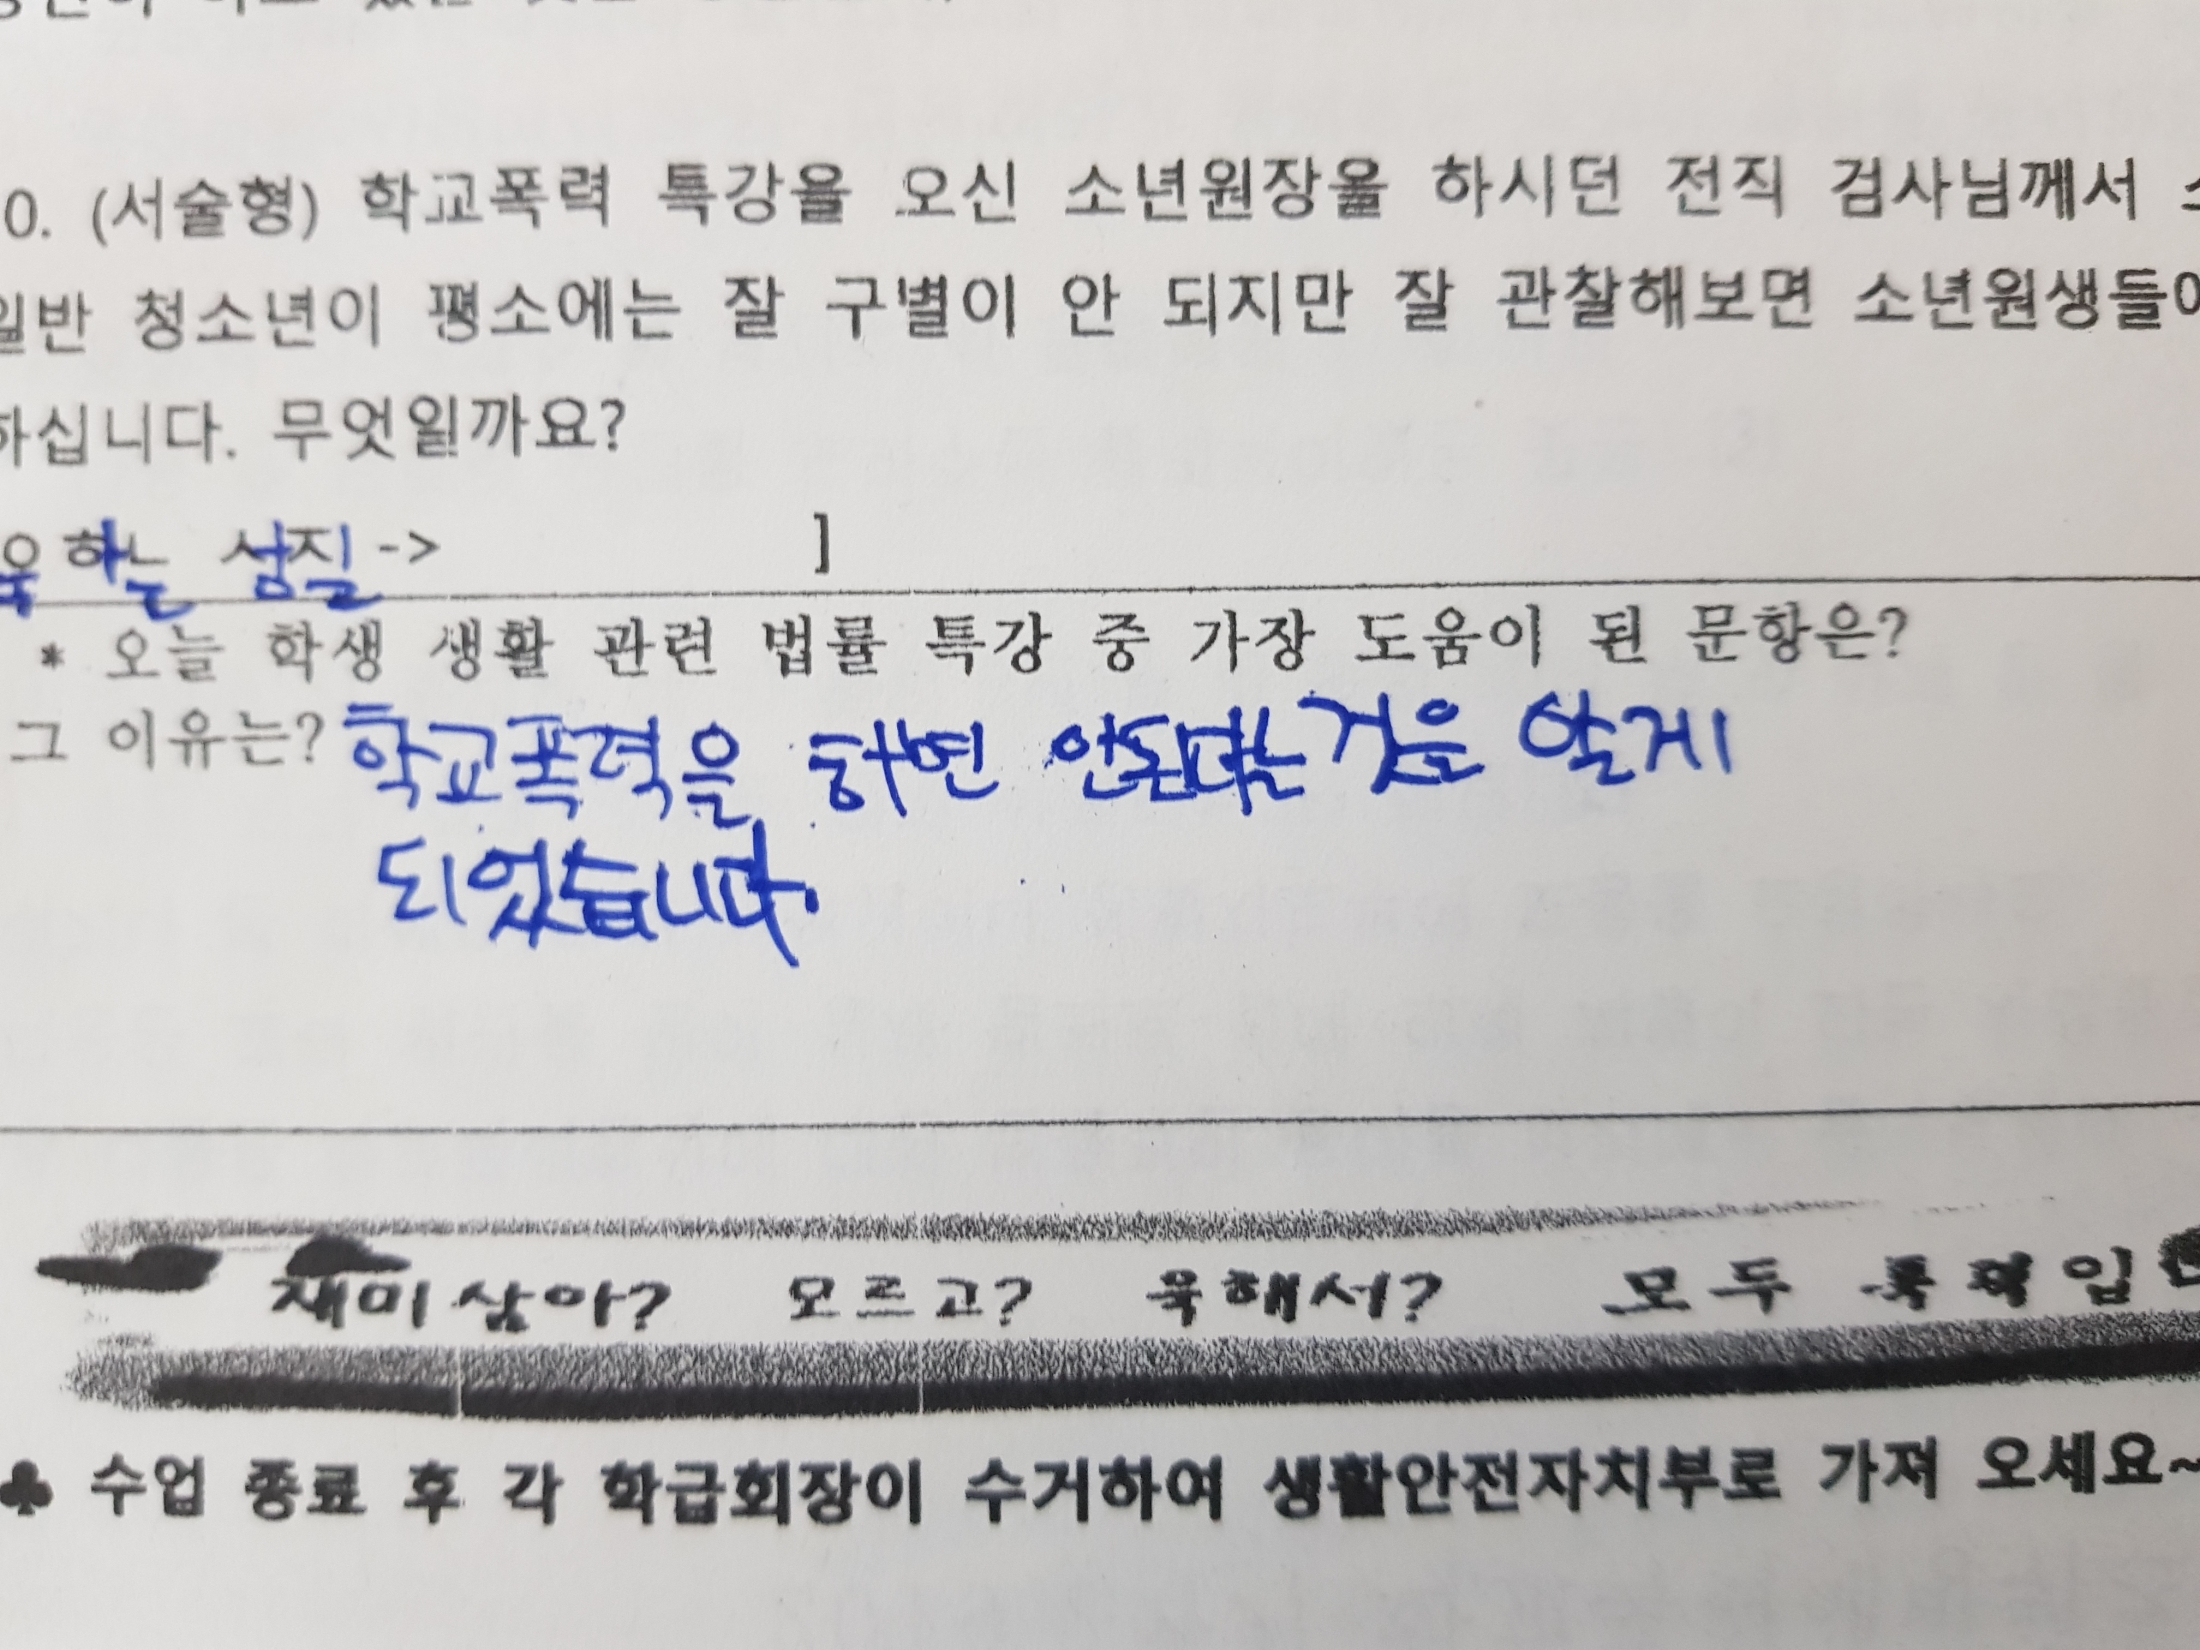 0. (서술형) 학교폭력 특강을 오신 소년원장을 하시던 전직 검사님께서
일반 청소년이 평소에는 잘 구별이 안 되지만 잘 관찰해보면 소년원생들이
하십니다. 무엇일까요?
욱하는 성질 -> ]
* 오늘 학생 생활 관련 법률 특강 중 가장 도움이 된 문항은?
그 이유는? 학교폭력을 하면 안된다는 것을 알게
되었습니다.
재미삼아? 모르고? 욱해서? 모두 폭력입
♣ 수업 종료 후 각 학급회장이 수거하여 생활안전자치부로 가져 오세요~